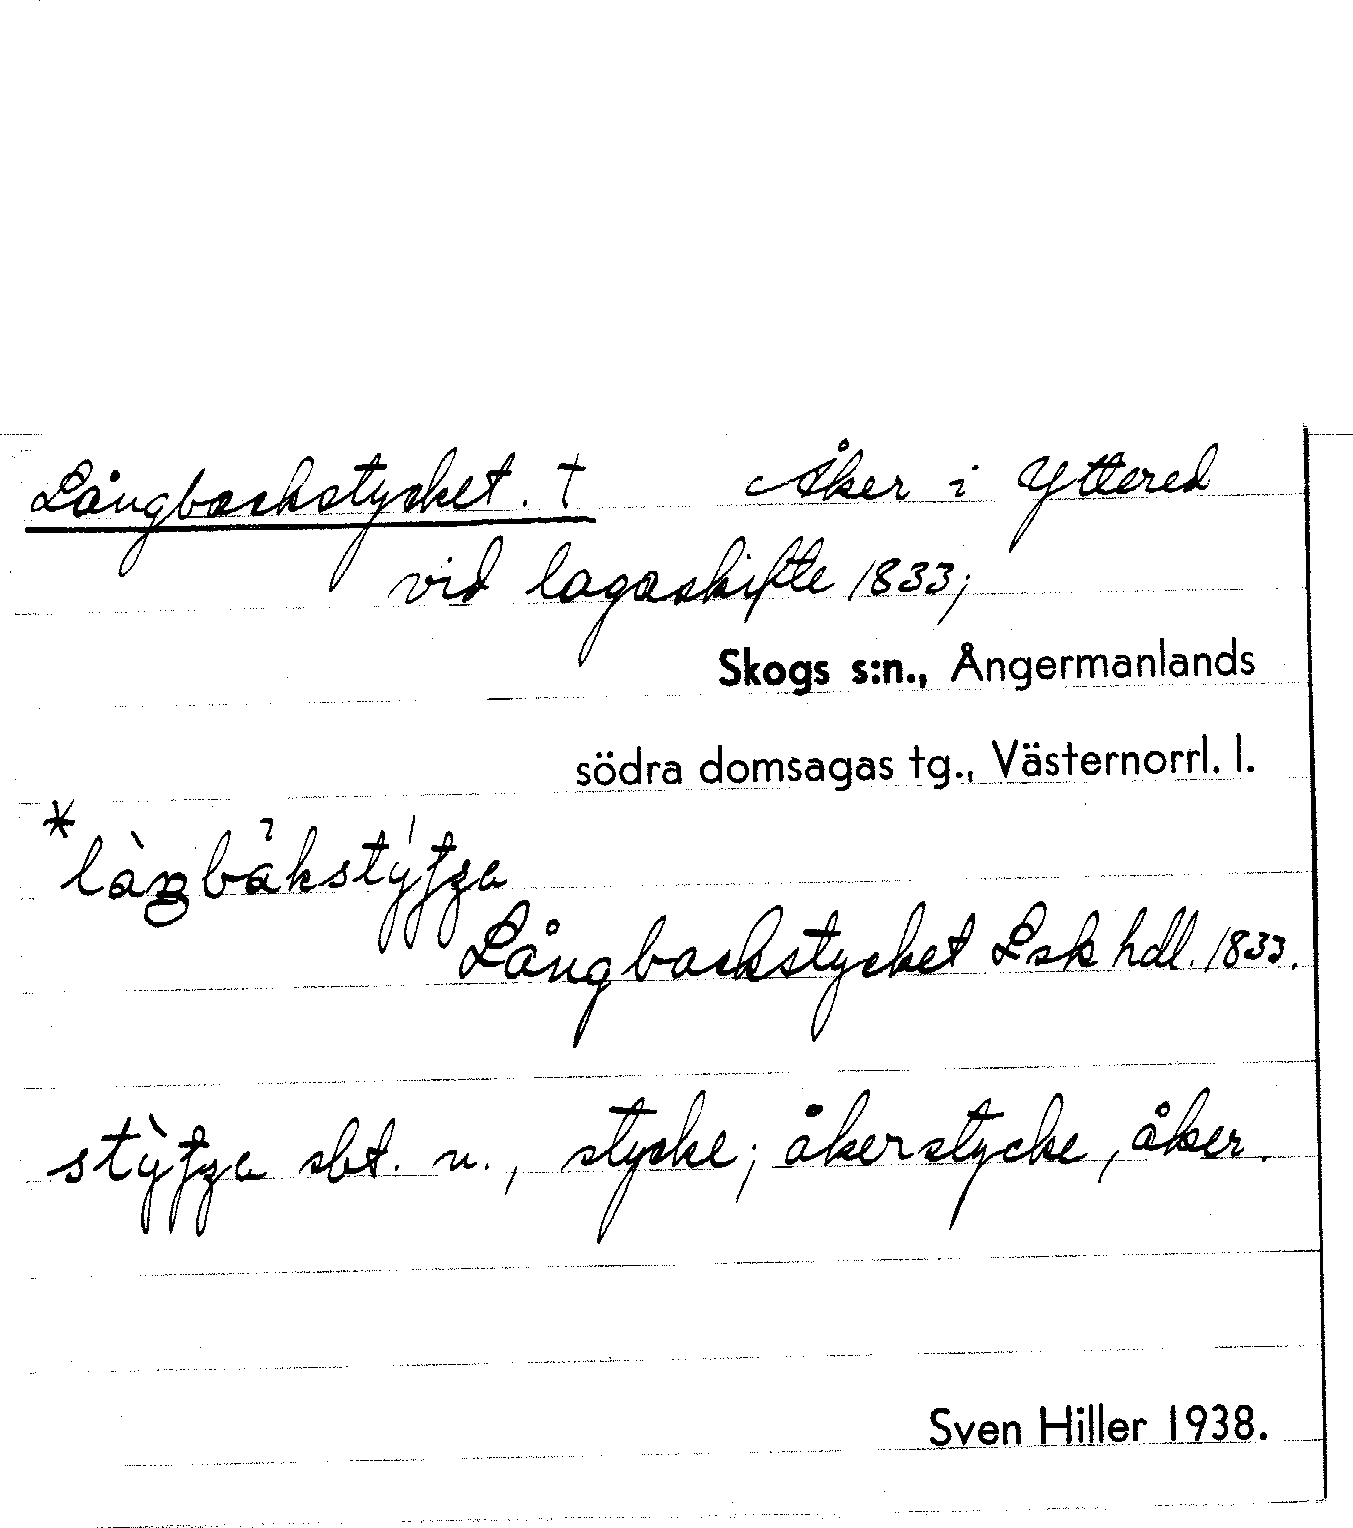 Långbackstycket. † Åker i Yttered
vid lagaskifte 1833;
Skogs s:n., Ångermanlands
södra domsagas tg., Västernorrl. l.
Långbackstycket Lsk hdl. 1833.
sbt. n., stycke; åkerstycke, åker.
Sven Hiller 1938.